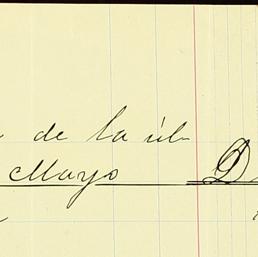 de la úl
Mayo D